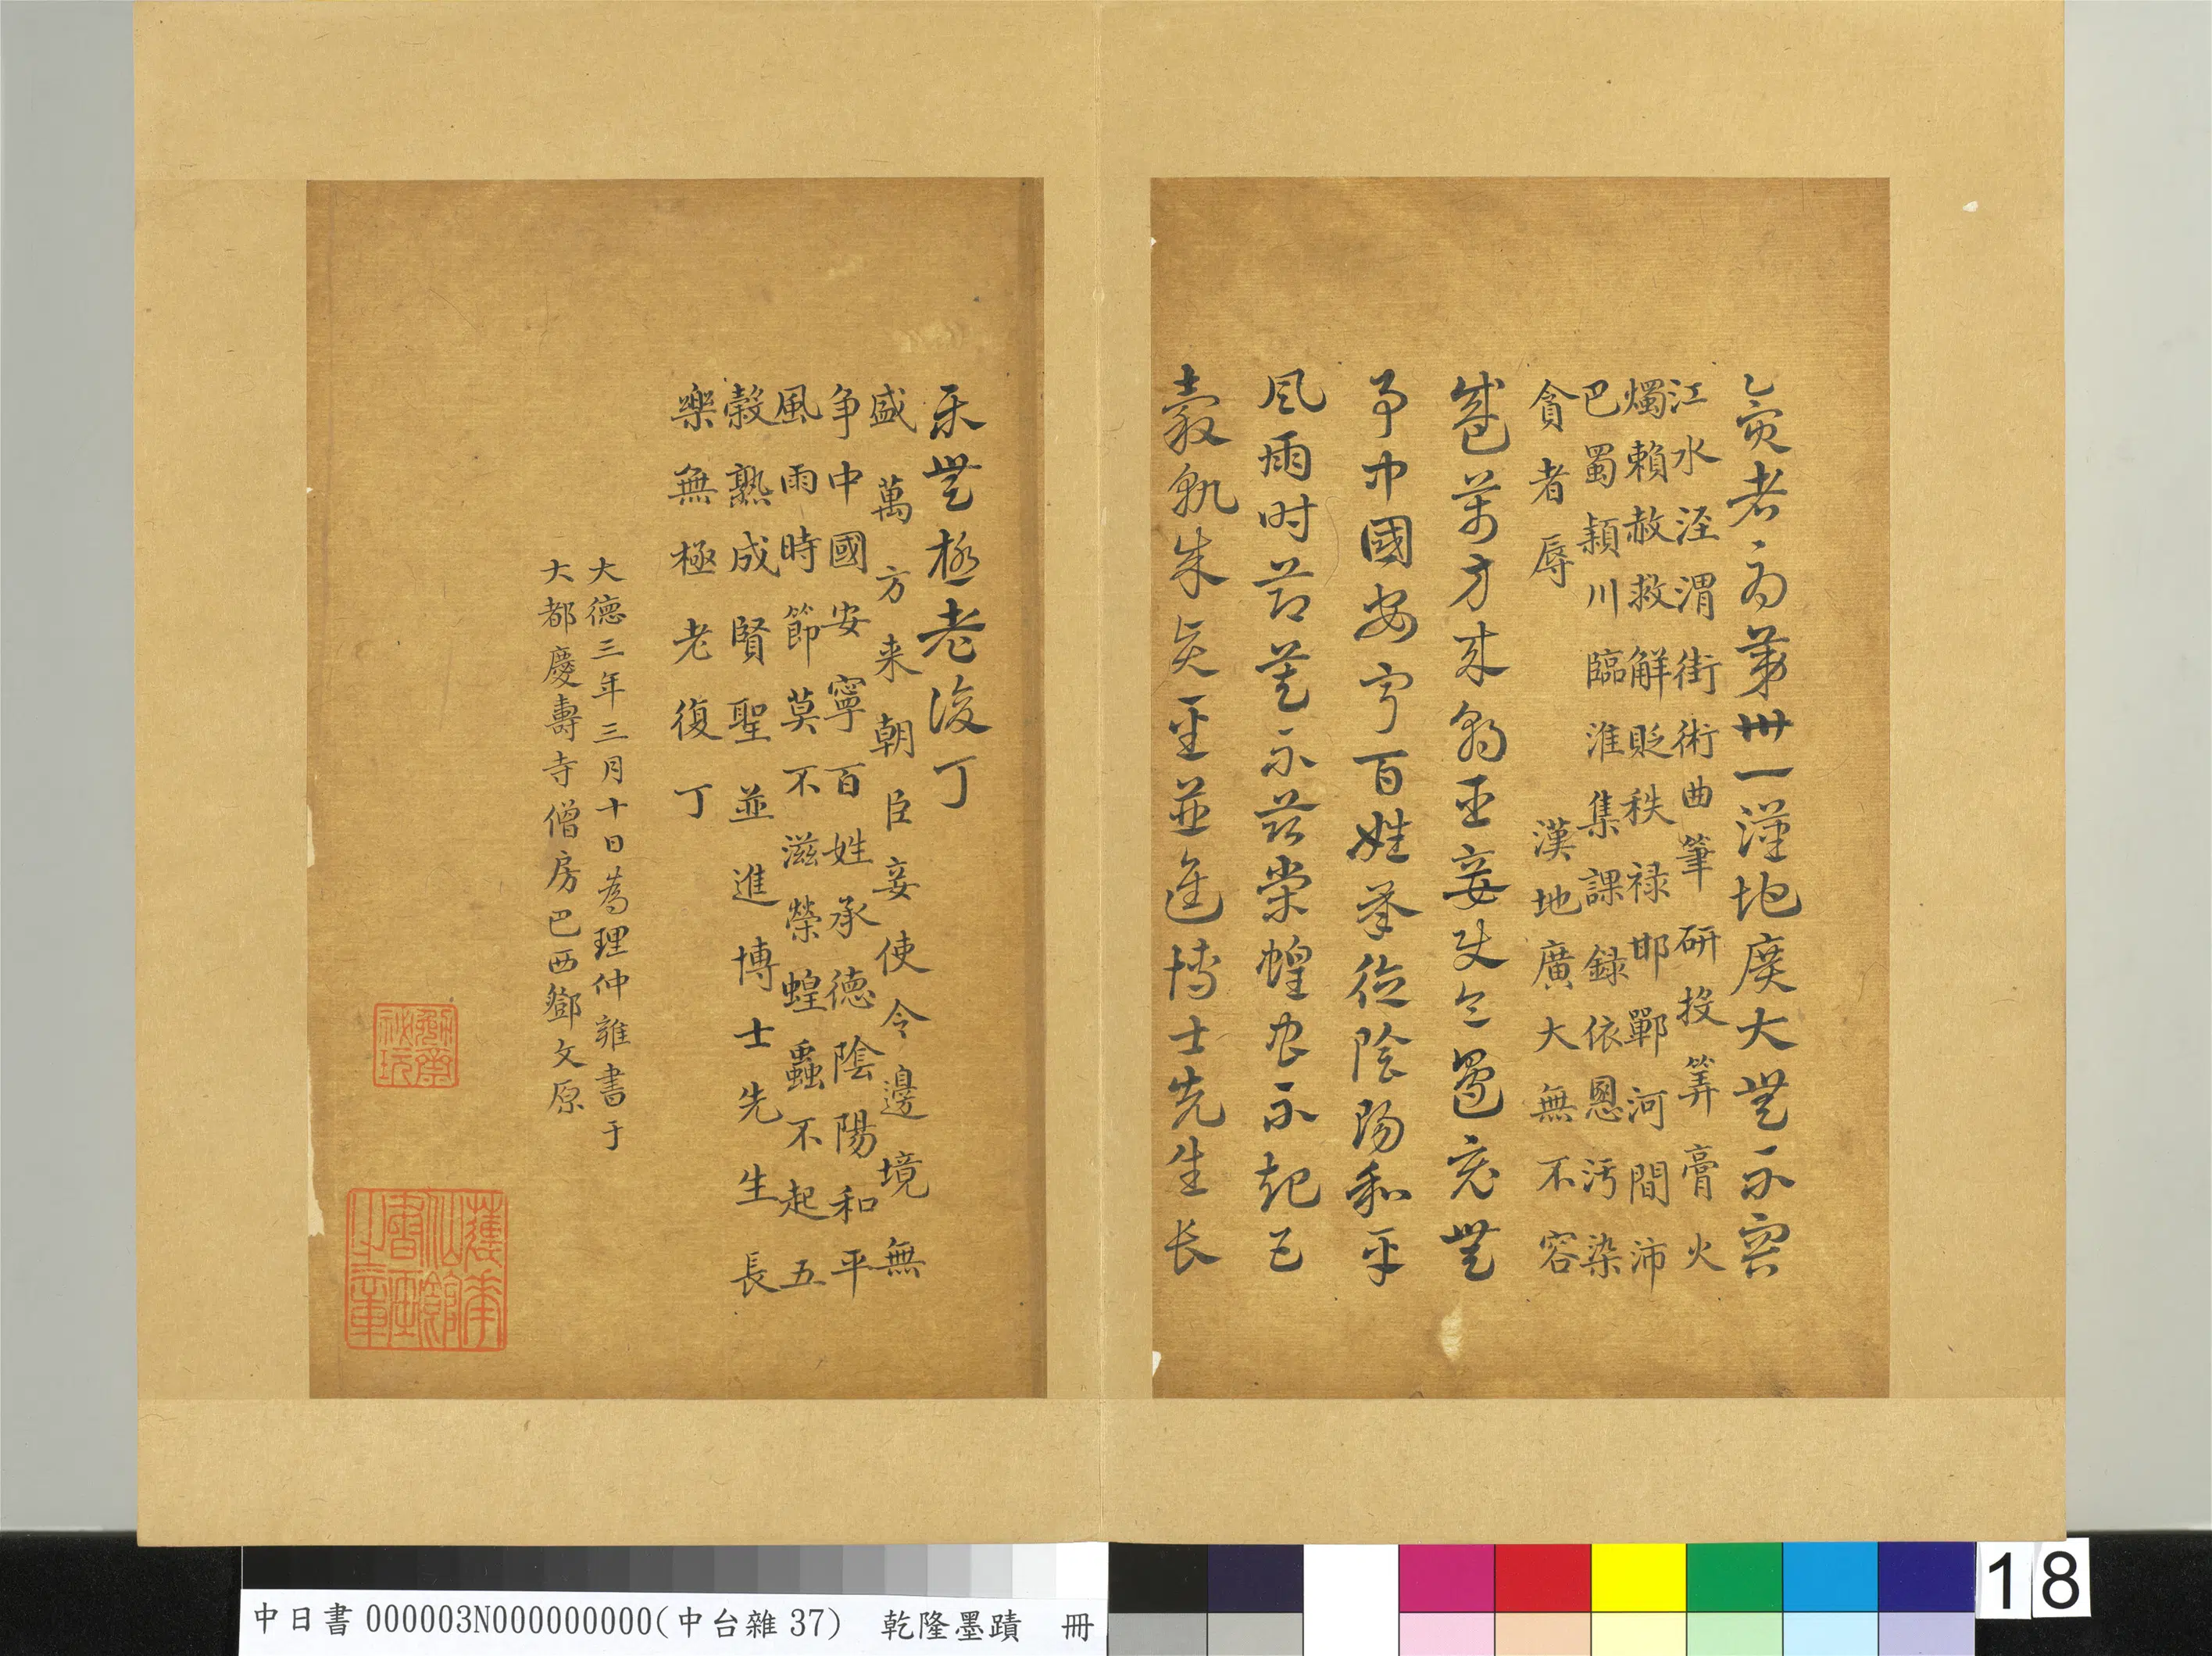 貪者辱第卅一漢地廣大無不容
江水涇渭街術曲筆研投筭膏火
燭賴赦救解貶秩祿邯鄲河間沛
巴蜀潁川臨淮集課錄依恩汚染
貪者辱　　漢地廣大無不容
盛萬方來朝臣妾使令邊境無
爭中國安寧百姓承德陰陽和平
風雨時節莫不滋榮蝗蟲不起五
穀孰成賢聖並進博士先生長
樂無極老復丁
盛萬方来朝臣妾使令邊境無
争中國安寧百姓承德陰陽和平
風雨時節莫不滋榮蝗蟲不起五
穀熟成賢聖並進博士先生長
樂無極老復丁
大德三年三月十日為理仲雍書于
大都慶壽寺僧房巴西鄧文原
中日書000003N000000000(中台雜37) 乾隆墨蹟 冊
18